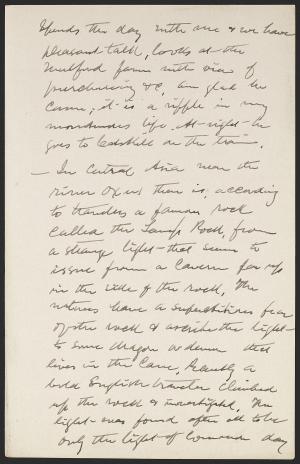 Spends the day with me & we have
pleasant talk, looks at the
Mulford farm with view of
purchasing &c. Am glad he
came; it is a ripple in my
monotonous life. At night he
goes to Peekskill on the train.
— In Central Asia near the
river Oxus there is, according
to travelers a famous rock
called the Lamp Rock, from
a strange light that seems to
issue from a cavern far up
in the side of the rock. The
natives have a superstitious fear
of the rock & ascribe the light
to some dragon or demon that
lives in the cave. Recently a
bold English traveler climbed
up the rock & investigated. The
light was found after all to be
only the light of common day